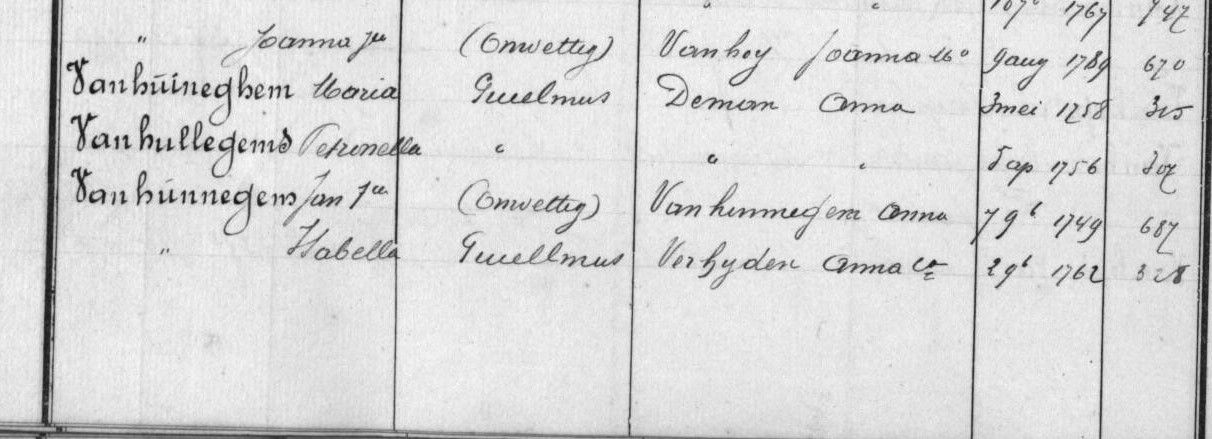 " " 10 7b 1767 747
" Joanna Jca (Onwettig) Vanhoy Joanna Ma 9 aug 1789 670
Vanhuineghem Maria Guielmus Deman Anna 3 mei 1758 315
Vanhullegems Petronella " " " 5 ap 1756 307
Vanhunnegens Jan Jca (Onwettig) Vanhunnegem Anna 7 9b 1749 687
" Isabella Guiellmus Verhyden Anna Ca 2 9b 1762 328